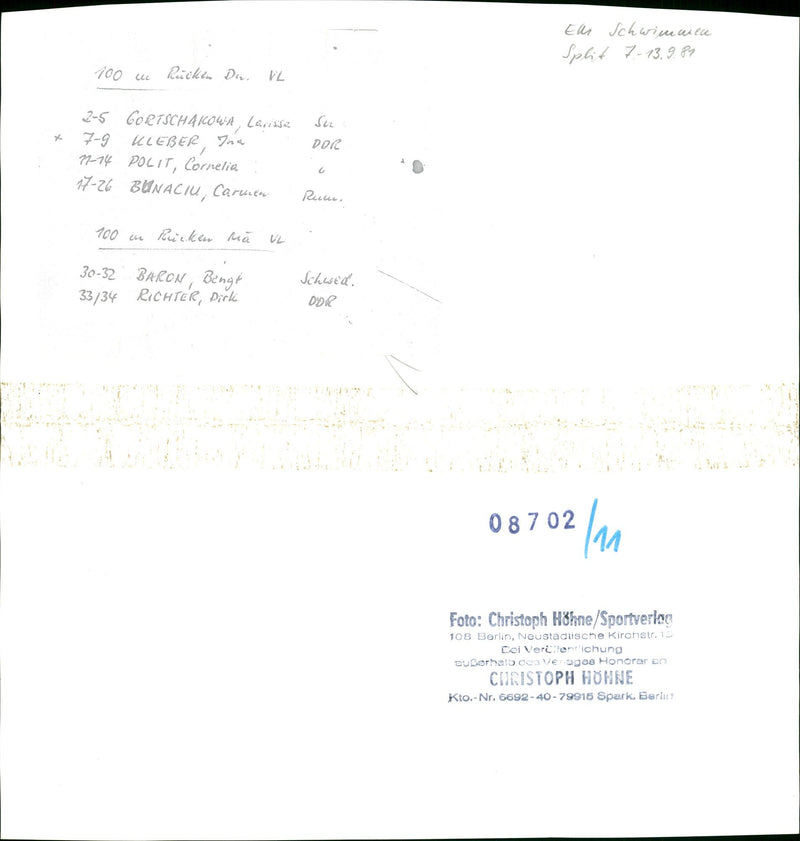 EM Schwimmen
Split 7.-13.9.81
100 m Rücken Dn. VL
2-5 GORTSCHAKOWA, Larissa SU
x 7-9 KLEBER, Ina DDR
11-14 POLIT, Cornelia "
17-26 BUNACIU, Carmen Rum.
100 m Rücken Mä VL
30-32 BARON, Bengt Schwed.
33/34 RICHTER, Dirk DDR
08702/11
Foto: Christoph Höhne/Sportverlag
108 Berlin, Neustädtische Kirchstr. 15
Bei Veröffentlichung
außerhalb des Verlages Honorar an
CHRISTOPH HÖHNE
Kto.-Nr. 6692-40-79915 Spark. Berlin